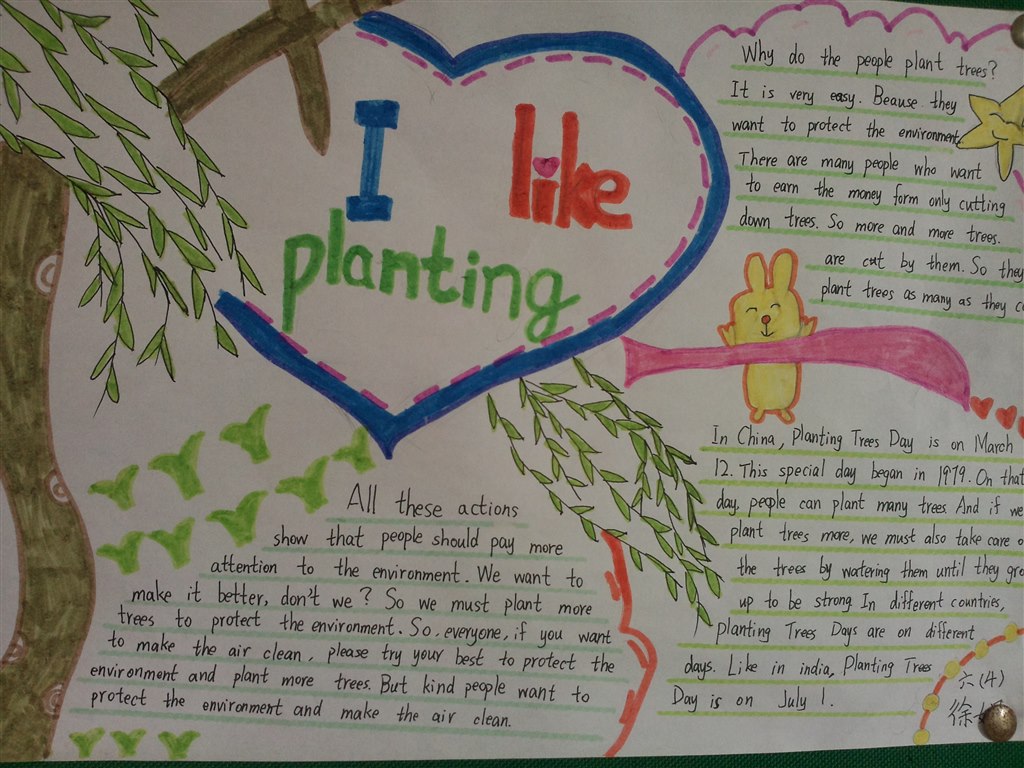 I like
planting
Why do the people plant trees?
It is very easy. Beause they
want to protect the environment
There are many people who want
to earn the money form only cutting
down trees. So more and more trees.
are cut by them. So they
plant trees as many as they
In China, Planting Trees Day is on March
12. This special day began in 1979. On that
day, people can plant many trees. And if we
plant trees more, we must also take care
the trees by watering them until they
up to be strong. In different countries,
planting Trees Days are on different
days. Like in india, Planting Trees
Day is on July 1.
All these actions
show that people should pay more
attention to the environment. We want to
make it better, don't we? So we must plant more
trees to protect the environment. So, everyone, if you want
to make the air clean, please try your best to protect the
environment and plant more trees. But kind people want to
protect the environment and make the air clean.
六(4)
徐